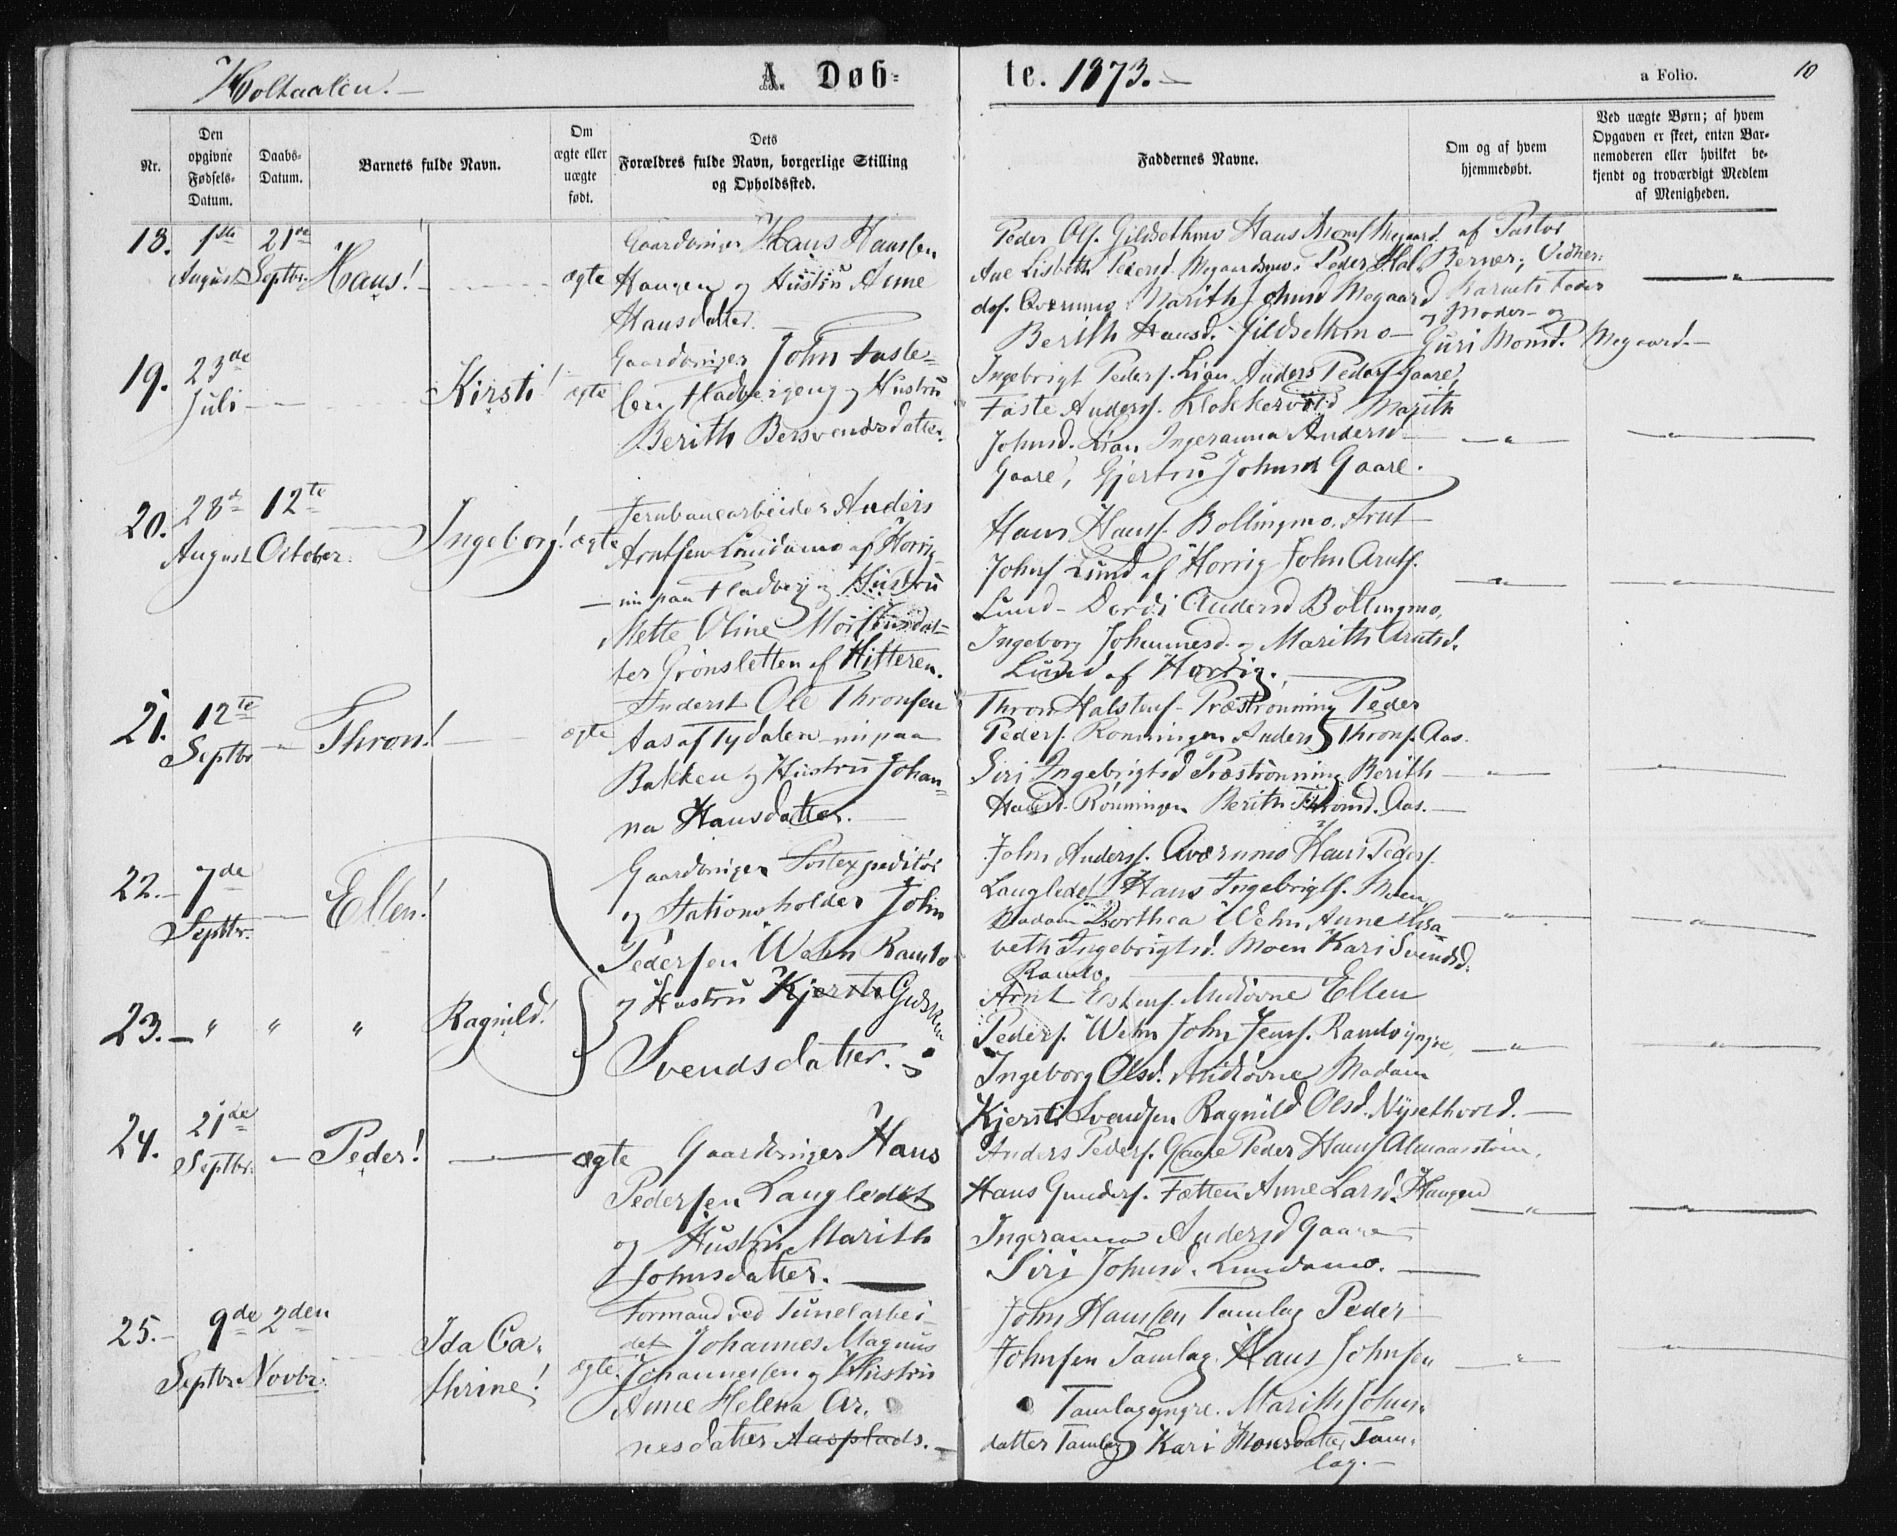 Holtaalen.
A. Døb-
te. 1873.
a Folio.
10
Nr.
Den opgivne Fødsels-Datum.
Daabs-Datum.
Barnets fulde Navn.
Om ægte eller uægte født.
Dets
Forældres fulde Navn, borgerlige Stilling
og Opholdssted.
Faddernes Navne.
Om og af hvem
hjemmedøbt.
Ved uægte Børn; af hvem
Opgaven er skeet, enten Bar-
nemoderen eller hvilket be-
kjendt og troværdigt Medlem
af Menigheden.
18. 1ste August 21de Septbr. Hans! ægte
Gaardbruger Hans Hansen
Haugen og Hustru Anne
Hansdatter.
Peder Ols. Gildsethmo Hans Monss. Megaard
Ane Lisbeth Pedersd. Megaardsmo. Peder
Marith Johnsd Megaard
Berith Hansd. Gildsethmo
af Pastor
Berner; Vidner:
Barnets Fader
og Moder og
Guri Monsd. Megaard.
19. 23de Juli Kirsti! ægte
Gaardbruger John Faste-
sen Fladbergeng og Hustru
Berith Bersvendsdatter.
Ingebrigt Peders. Lian Anders Peders. Gaare,
Faste Anderss. Klokkervold Marith
Johnsd. Lian Ingeranna Andersd
Gaare, Gjertru Johnsd Gaare.
20. 28de August 12te October. Ingeborg! ægte
Jernbanearbeider Anders
Arntsen Lundamo af Horrig
nu paa Fladberg og Hustru
Mette Oline Mortensdat-
ter Grønsletten af Hitteren.
Hans Hanss. Bollingmo, Arnt
Johns Lund af Horrig John Arnts.
Lund - Dordi Andersd Bollingmo,
Ingeborg Johannesd. og Marith Arntsd.
Lund af Horrig.
21. 12te Septbr Thron! ægte
Inderst Ole Thronsen
Aas af Tydalen nu paa
Bakken og Hustru Johan-
na Hansdatter.
Thron Halstens. Præstrønning Peder
Peders. Rønningen Anders Throns. Aas.
Siri Ingebrigtsd Præstrønning Berith
Hansd. Rønningen Berith Thronsd. Aas.
22. 7de Septbr. Ellen!
Gaardbruger Postexpeditør
og Stationsholder John
Pedersen Wehn Ramlo
og Hustru Kjersti
Svendsdatter.
John Anderss. Qværnmo Hans Peders.
Langledet Hans Ingebrigts. Moen
Madam Dorthea Wehn, Anne Elisa-
beth Ingebrigtsd. Moen Kari Svendsd.
Ramlo.
23. " " " Ragnild!
Arnt Estens. Midtøvne Ellen
Peders. Wehn John Jenss. Ramlo yngre,
Ingeborg Olsd. Midtøvne Madam
Kjersti Svendsen Ragnild Olsd. Nysethvold.
24. 21de Septbr. Peder! ægte
Gaardbruger Hans
Pedersen Langledet
og Hustru Marith
Johnsdatter.
Anders Peders. Gaare Peder Hanss Almaasstrøm,
Hans Gunders. Fætten Anne Larsd. Haugen
Ingeranna Andersd Gaare
Siri Johnsd. Lundamo.
25. 9de Septbr. 2den Novbr. Ida Ca-
thrine! ægte
Formand ved Tunelarbei-
det Johannes Magnus
Johannessen og Hustru
Anne Helena Ar-
nesdatter Aasplads.
John Hansen Tamlag Peder
Johnsen Tamlag Hans Johnsen
Tamlag yngre. Marith Johns-
datter Tamlag Kari Monsdatter Tam-
lag.